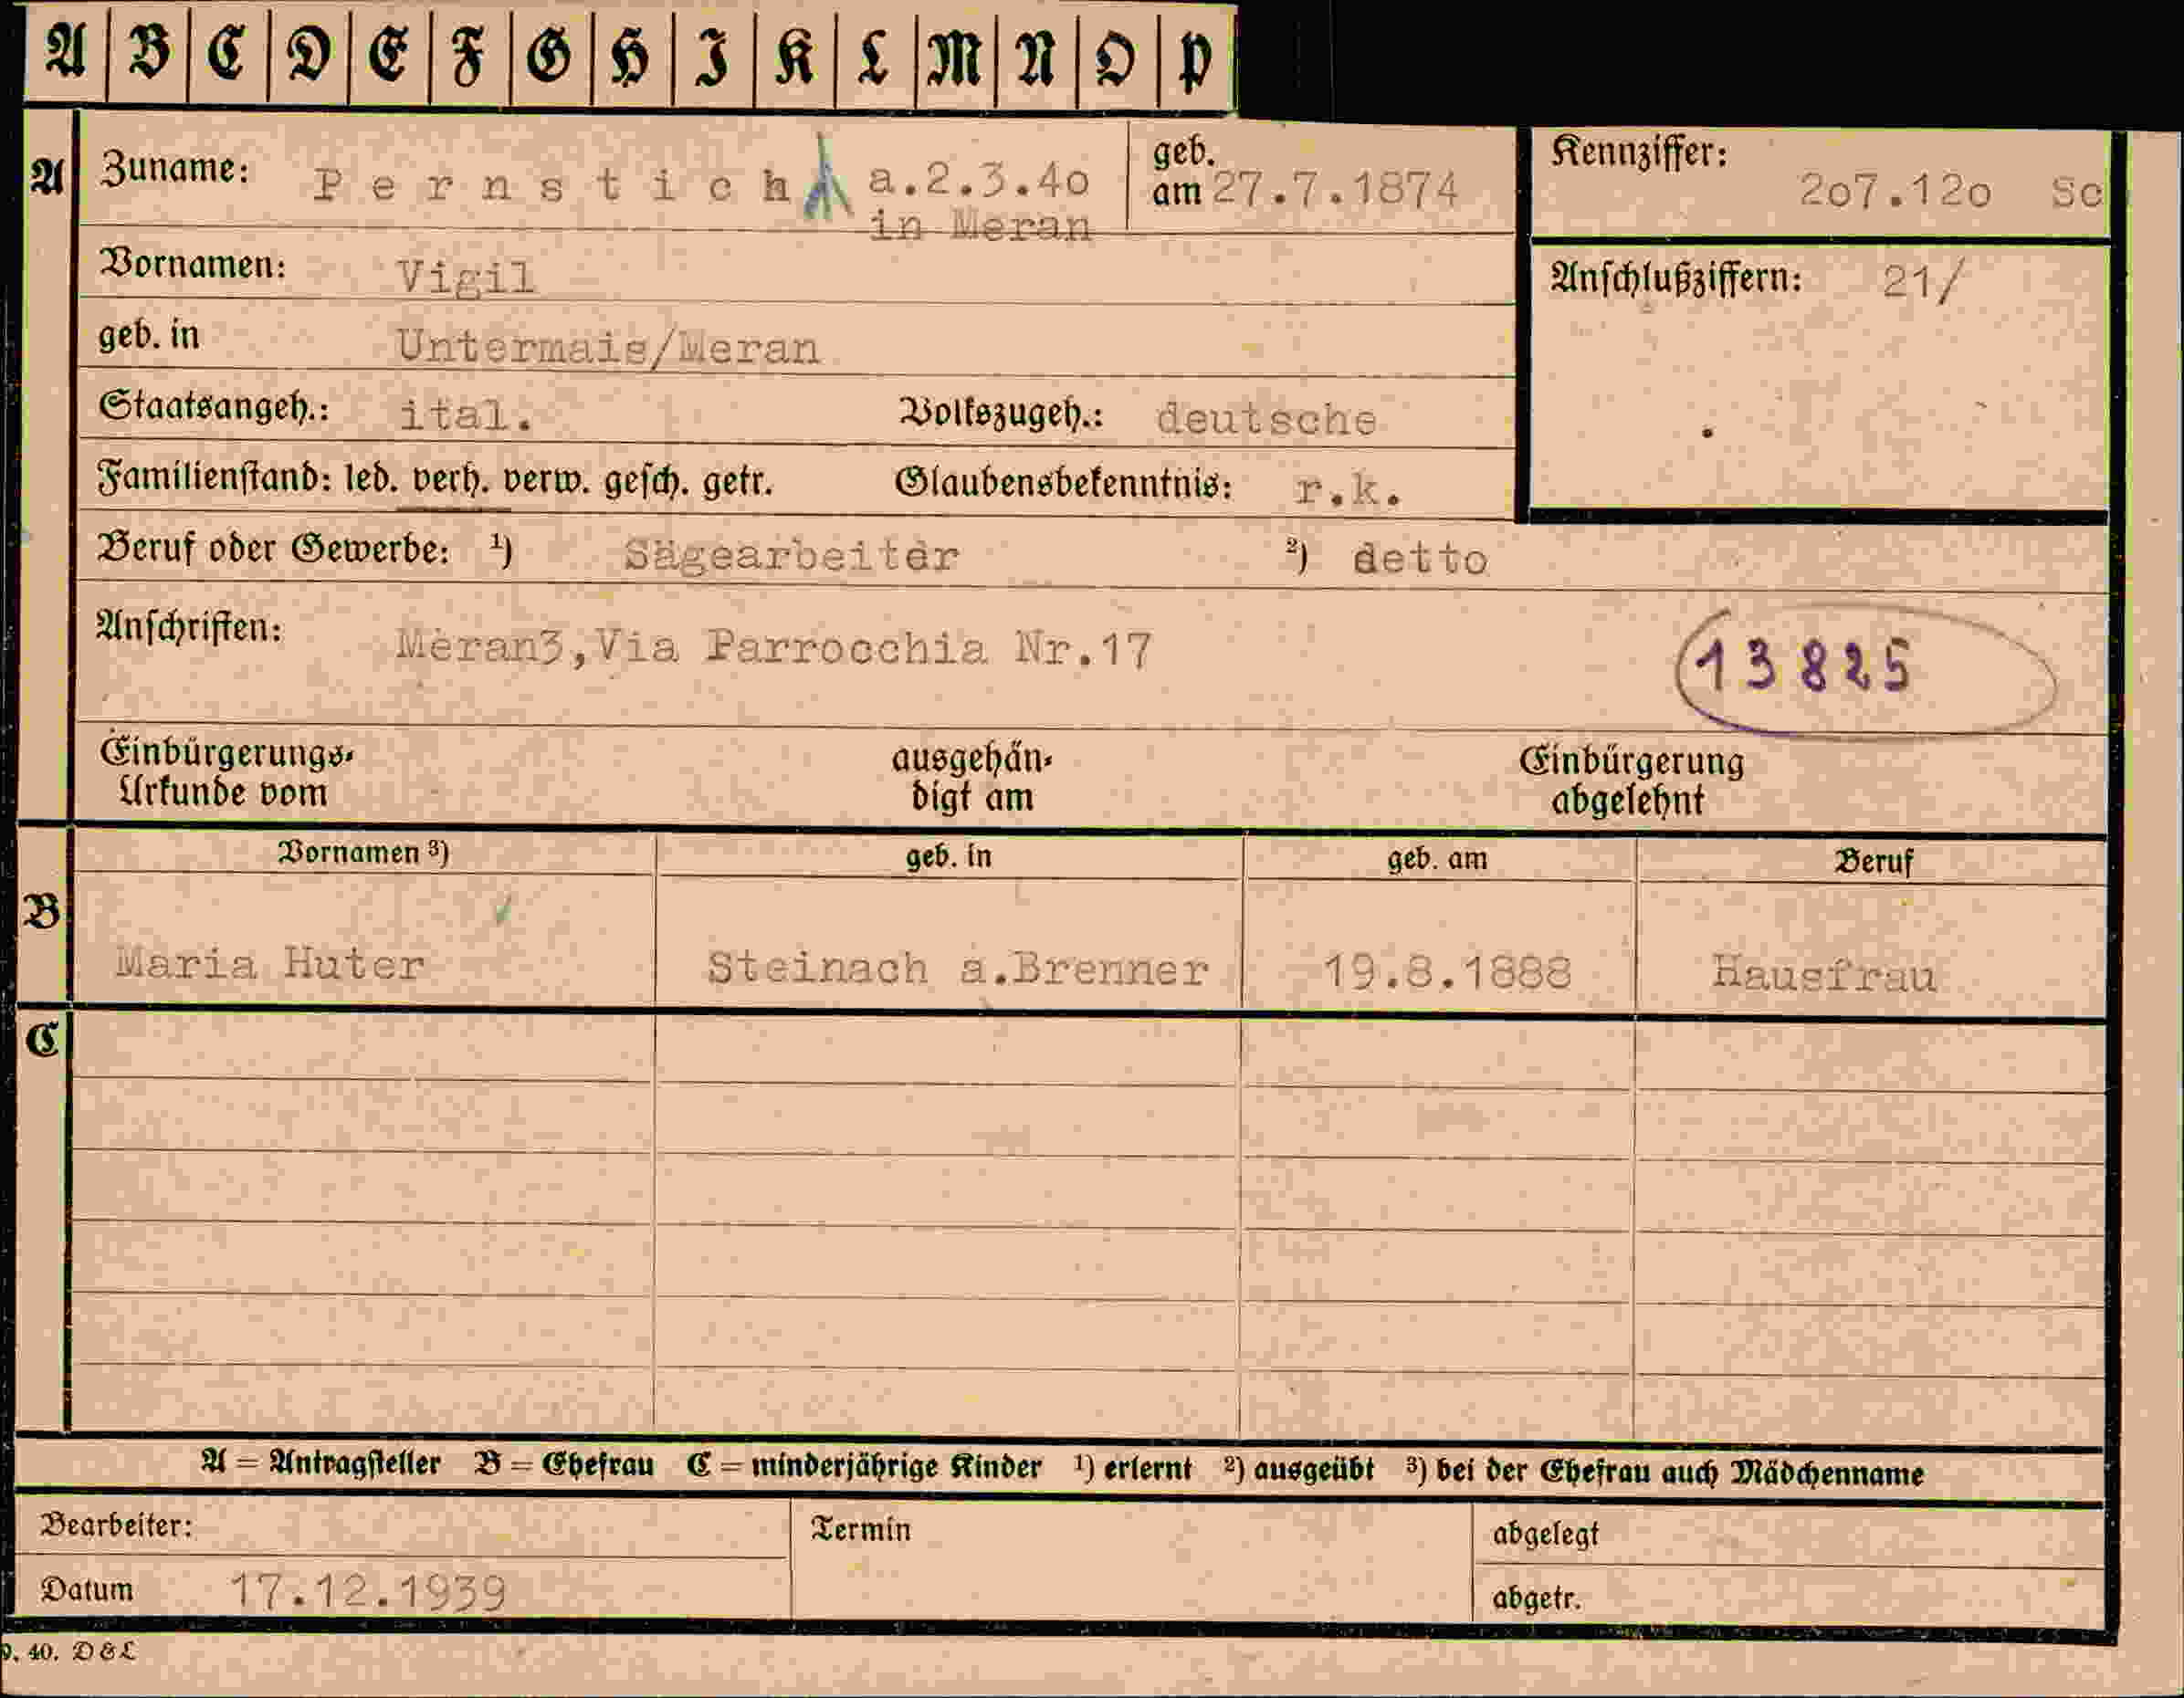 A B C D E F G H I K L M N O P
A Zuname: Pernstich a.2.3.4o geb. am 27.7.1874 Kennziffer: 2o7.12o Sc
in Meran
Vornamen: Vigil Anschlußziffern: 21/
geb. in Untermais/Meran
Staatsangeh.: ital. Volkszugeh.: deutsche
Familienstand: led. verh. verw. gesch. getr. Glaubensbekenntnis: r.k.
Beruf oder Gewerbe: ¹) Sägearbeiter ²) detto
Anschriften: Meran3,Via Parrocchia Nr.17 13825
Einbürgerungs- ausgehän- Einbürgerung
Urkunde vom digt am abgelehnt
Vornamen ³) geb. in geb. am Beruf
B
Maria Huter Steinach a.Brenner 19.8.1888 Hausfrau
C
A = Antragsteller B = Ehefrau C = minderjährige Kinder ¹) erlernt ²) ausgeübt ³) bei der Ehefrau auch Mädchenname
Bearbeiter: Termin abgelegt
Datum 17.12.1939 abgetr.
9. 40. D&L